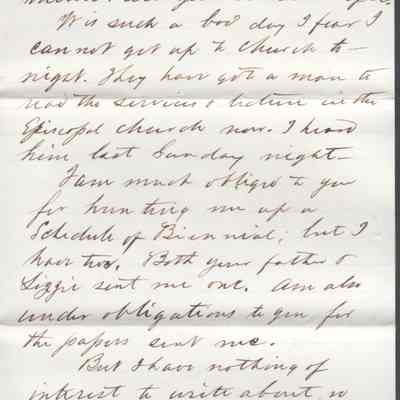 It is such a bad day I fear I
can not get up to church to-
night. They have got a man to
read the services & lecture in the
Episcopal church now. I heard
him last Sunday night-
I am much obliged to you
for hunting me up a
Schedule of Biennial; but I
have two. Both your father &
Lizzie sent me one. Am also
under obligations to you for
the papers sent me.
But I have nothing of
interest to write about, so